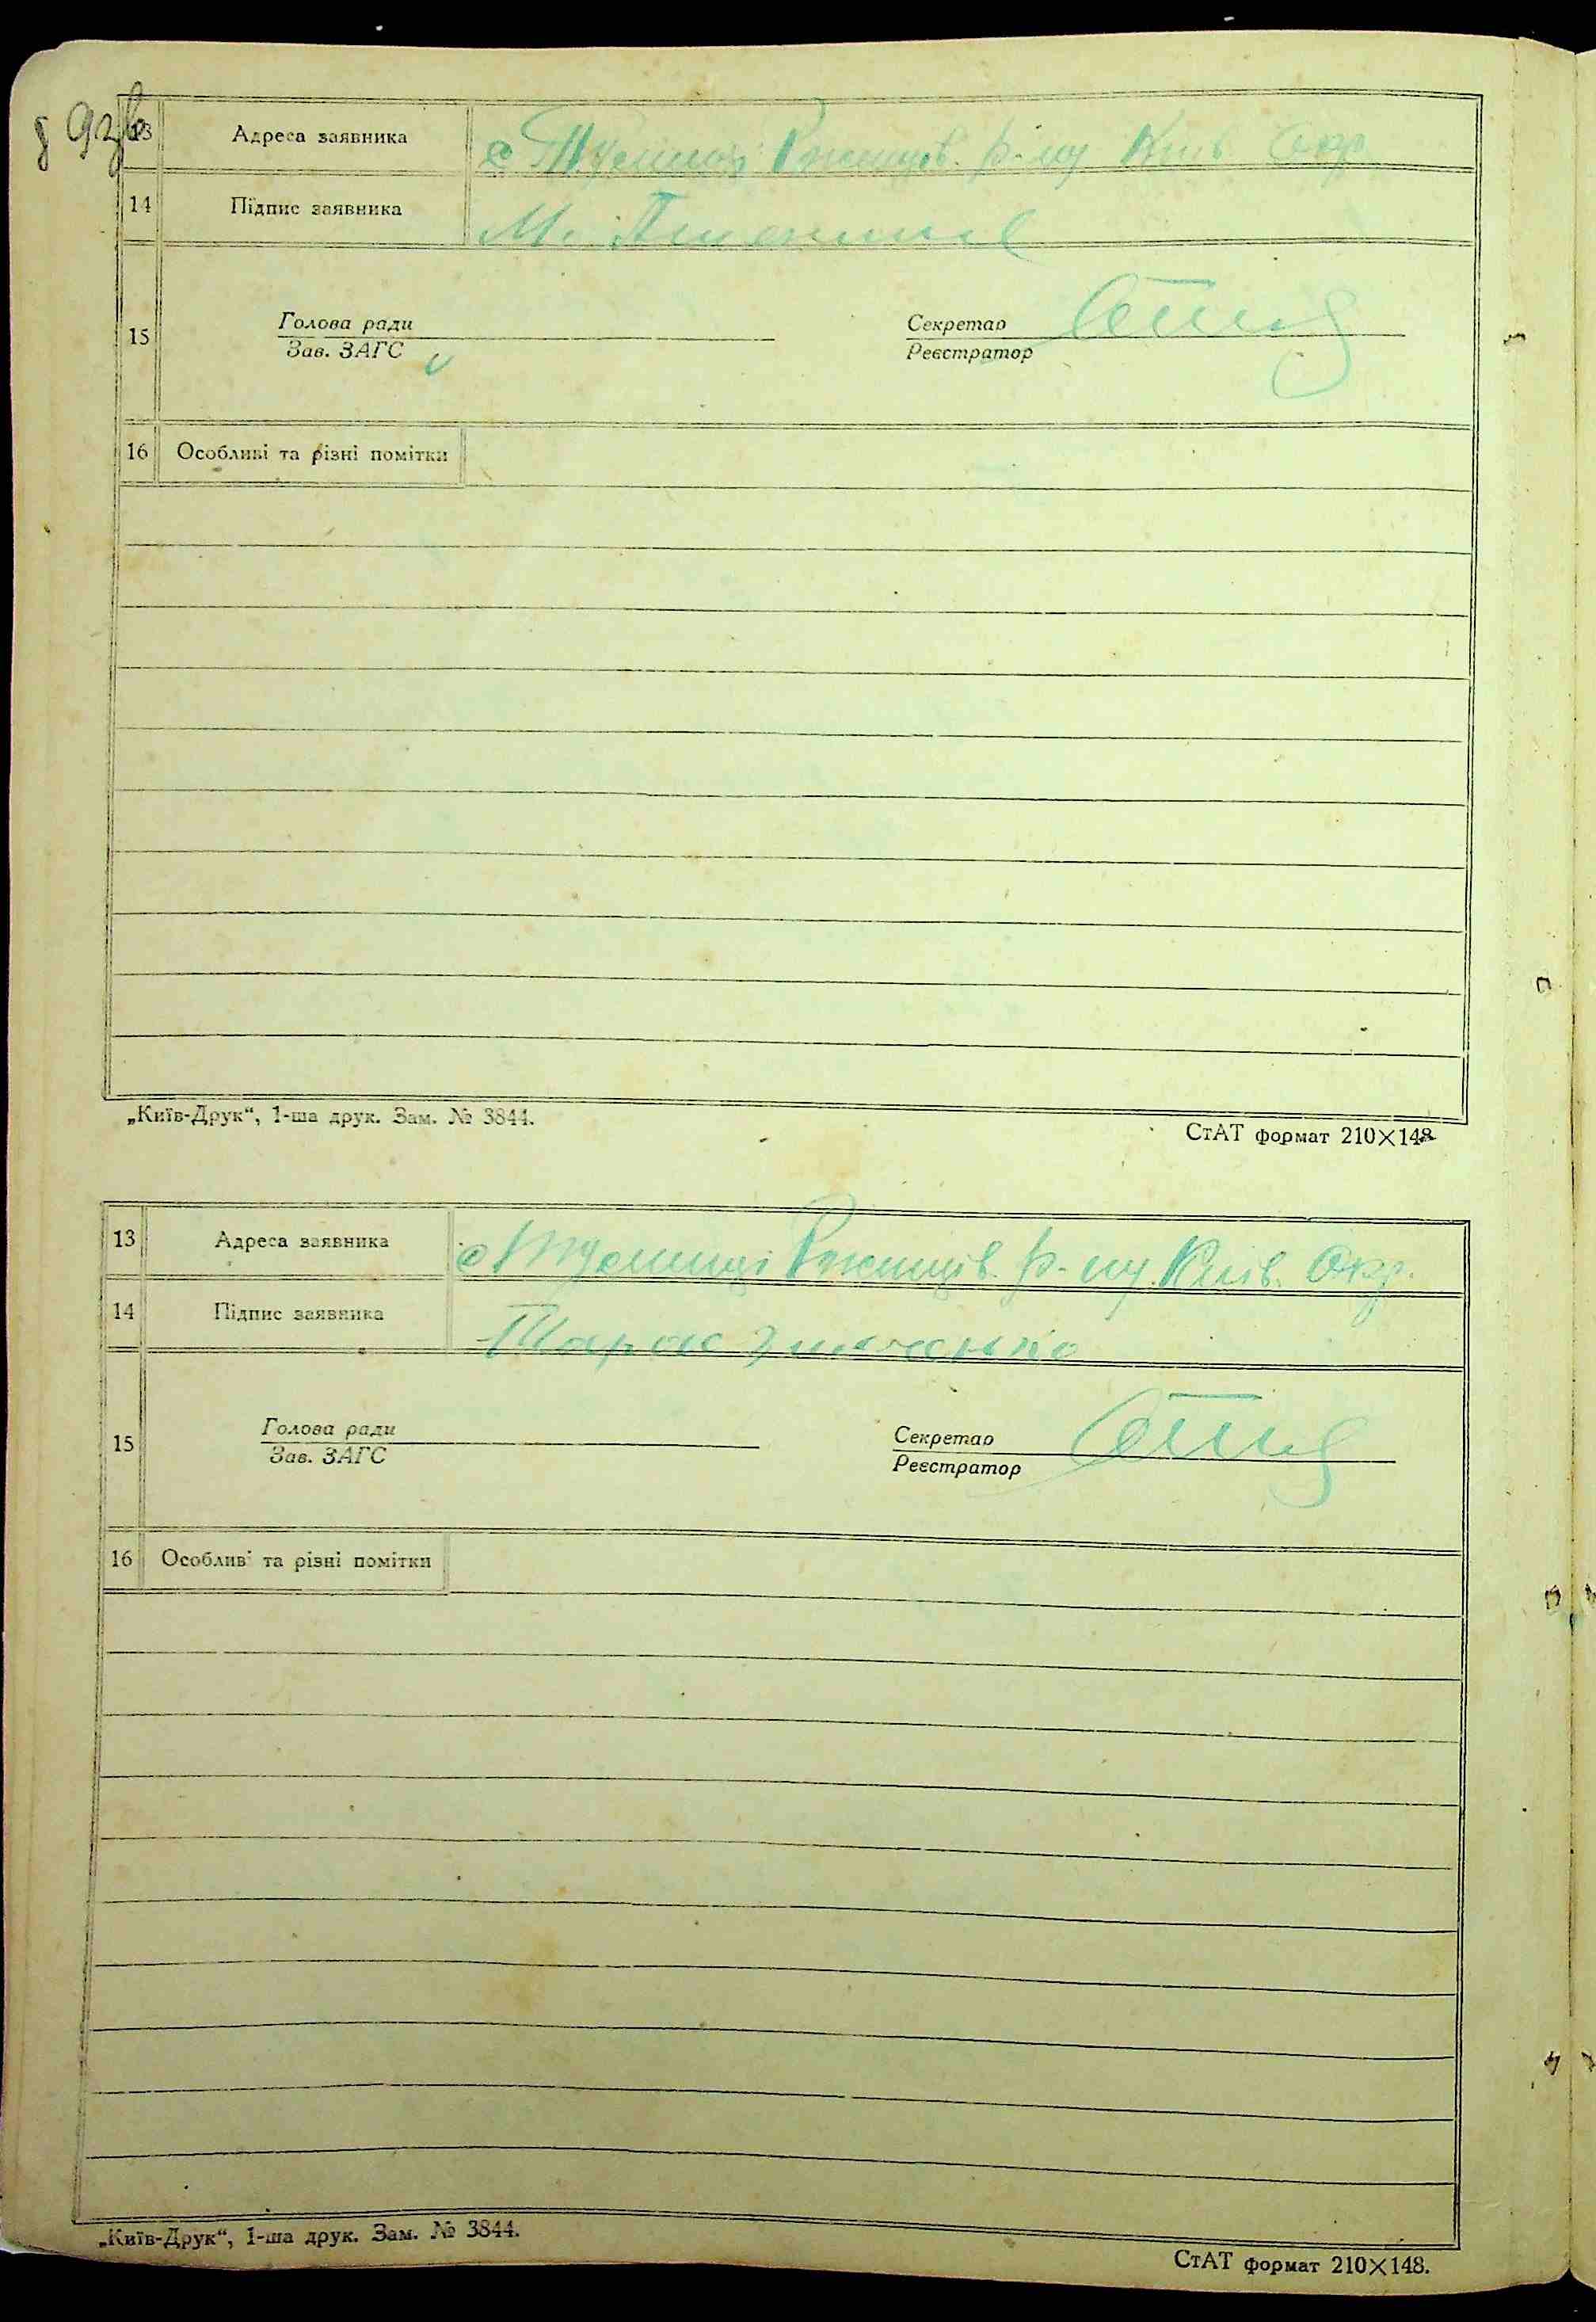 13 Адреса заявника р-ну Київ Окр.
14 Підпис заявника М.
15 Голова ради Секретар
Зав. ЗАГС Реєстратор
16 Особливі та різні помітки
„Київ-Друк“, 1-ша друк. Зам. № 3844.
СтАТ формат 210×148
13 Адреса заявника р-ну Київ. Окр.
14 Підпис заявника Тарас
15 Голова ради Секретар
Зав. ЗАГС Реєстратор
16 Особливі та різні помітки
„Київ-Друк“, 1-ша друк. Зам. № 3844.
СтАТ формат 210×148.